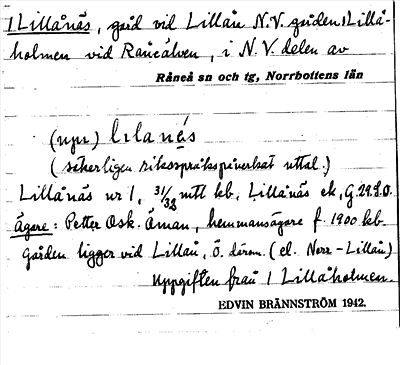 1 Lillånäs, gård vid Lillån N.V. gården 1 Lillå-
holmen vid Råneälven, i N.V. delen av
Råneå sn och tg, Norrbottens län
(upr.) lılanés
(säkerligen riksspråkspåverkat uttal.)
Lillånäs nr 1, 31/32 mtl kb. Lillånäs ek. G.29.9.0.
Ägare: Petter Osk. Öman, hemmansägare f. 1900 kb.
Gården ligger vid Lillån, Ö. därom. (el. Norr-Lillån)
Uppgiften från 1 Lillåholmen.
EDVIN BRÄNNSTRÖM 1942.